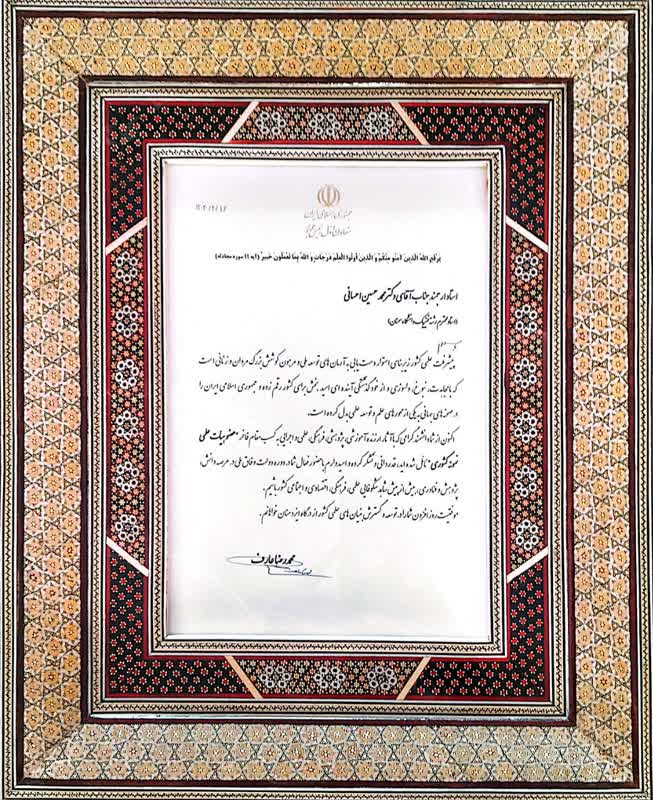 جمهوری اسلامی ایران
معاون اول رئیس جمهور
يَرْفَعِ اللَّهُ الَّذِينَ آمَنُوا مِنْكُمْ وَ الَّذِينَ أُوتُوا الْعِلْمَ دَرَجَاتٍ وَ اللَّهُ بِمَا تَعْمَلُونَ خَبِيرٌ (آیه ۱۱ سوره مجادله)
استاد ارجمند جناب آقای دکتر محمد حسین احسانی
(استاد محترم رشته فیزیک دانشگاه سمنان)
پیشرفت علمی کشور زیربنای استوار دست یابی به آرمان های توسعه ملی و مرهون کوشش بزرگ مردان و زنانی است
که با مجاهدت، نبوغ، دلسوزی و از خود گذشتگی آینده ای امید بخش برای کشور رقم زده و جمهوری اسلامی ایران را
در صحنه های جهانی به یکی از محورهای علم و توسعه علمی بدل کرده است.
اکنون از شما دانشمند گرامی که با آثار ارزنده آموزشی، پژوهشی، فرهنگی، علمی و اجرایی به کسب مقام فاخر "عضو هیات علمی
نمونه کشوری" نائل شده اید، قدردانی و تشکر کرده و امیدوارم با حضور فعال شما در دوره دولت وفاق ملی در عرصه دانش،
پژوهش و فناوری، بیش از پیش شاهد شکوفایی علمی، فرهنگی، اقتصادی و اجتماعی کشور باشیم.
موفقیت روز افزون شما را در توسعه و گسترش بنیان های علمی کشور از درگاه ایزد منان خواهانم.
محمدرضا عارف